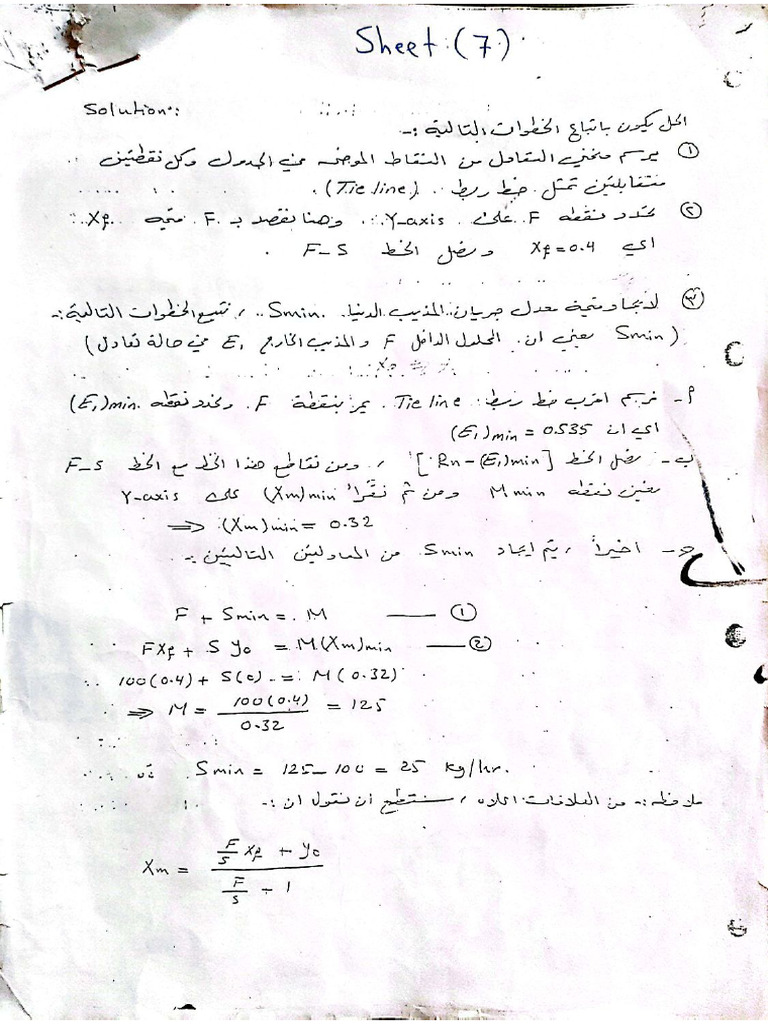 Sheet (7)
Solution:
الحل يكون باتباع الخطوات التالية :-
① يرسم منحني التعادل من النقاط الموضحه في الجدول وكل نقطتين
متقابلتين تمثل خط ربط (Tie line)
② نحدد نقطه F على Y-axis وهنا نقصد بـ F قيمه Xf
اي Xf = 0.4 ونصل الخط F-S
③ لايجاد قيمة معدل جريان المذيب الدنيا Smin ، نتبع الخطوات التالية :-
(Smin يعني ان المحلول الداخل F والمذيب الخارج E1 في حالة تعادل)
أ- نرسم اقرب خط ربط Tie line يمر بنقطة F ونحدد نقطه (E1)min
اي ان (E1)min = 0.535
ب- نصل الخط [Rn-(E1)min] ، ومن تقاطع هذا الخط مع الخط F-S
نعين نقطه Mmin ومن ثم نقرأ (Xm)min على Y-axis
⇒ (Xm)min = 0.32
ج- اخيراً ، يتم ايجاد Smin من المعادلتين التاليتين :-
F + Smin = M —— ①
FXf + S y0 = M(Xm)min —— ②
100(0.4) + S(0) = M(0.32)
⇒ M = 100(0.4) / 0.32 = 125
Smin = 125 - 100 = 25 kg/hr.
ملاحظه :- من العلاقات اعلاه ، نستطيع ان نقول ان :-
Xm = (F/S Xf + y0) / (F/S + 1)